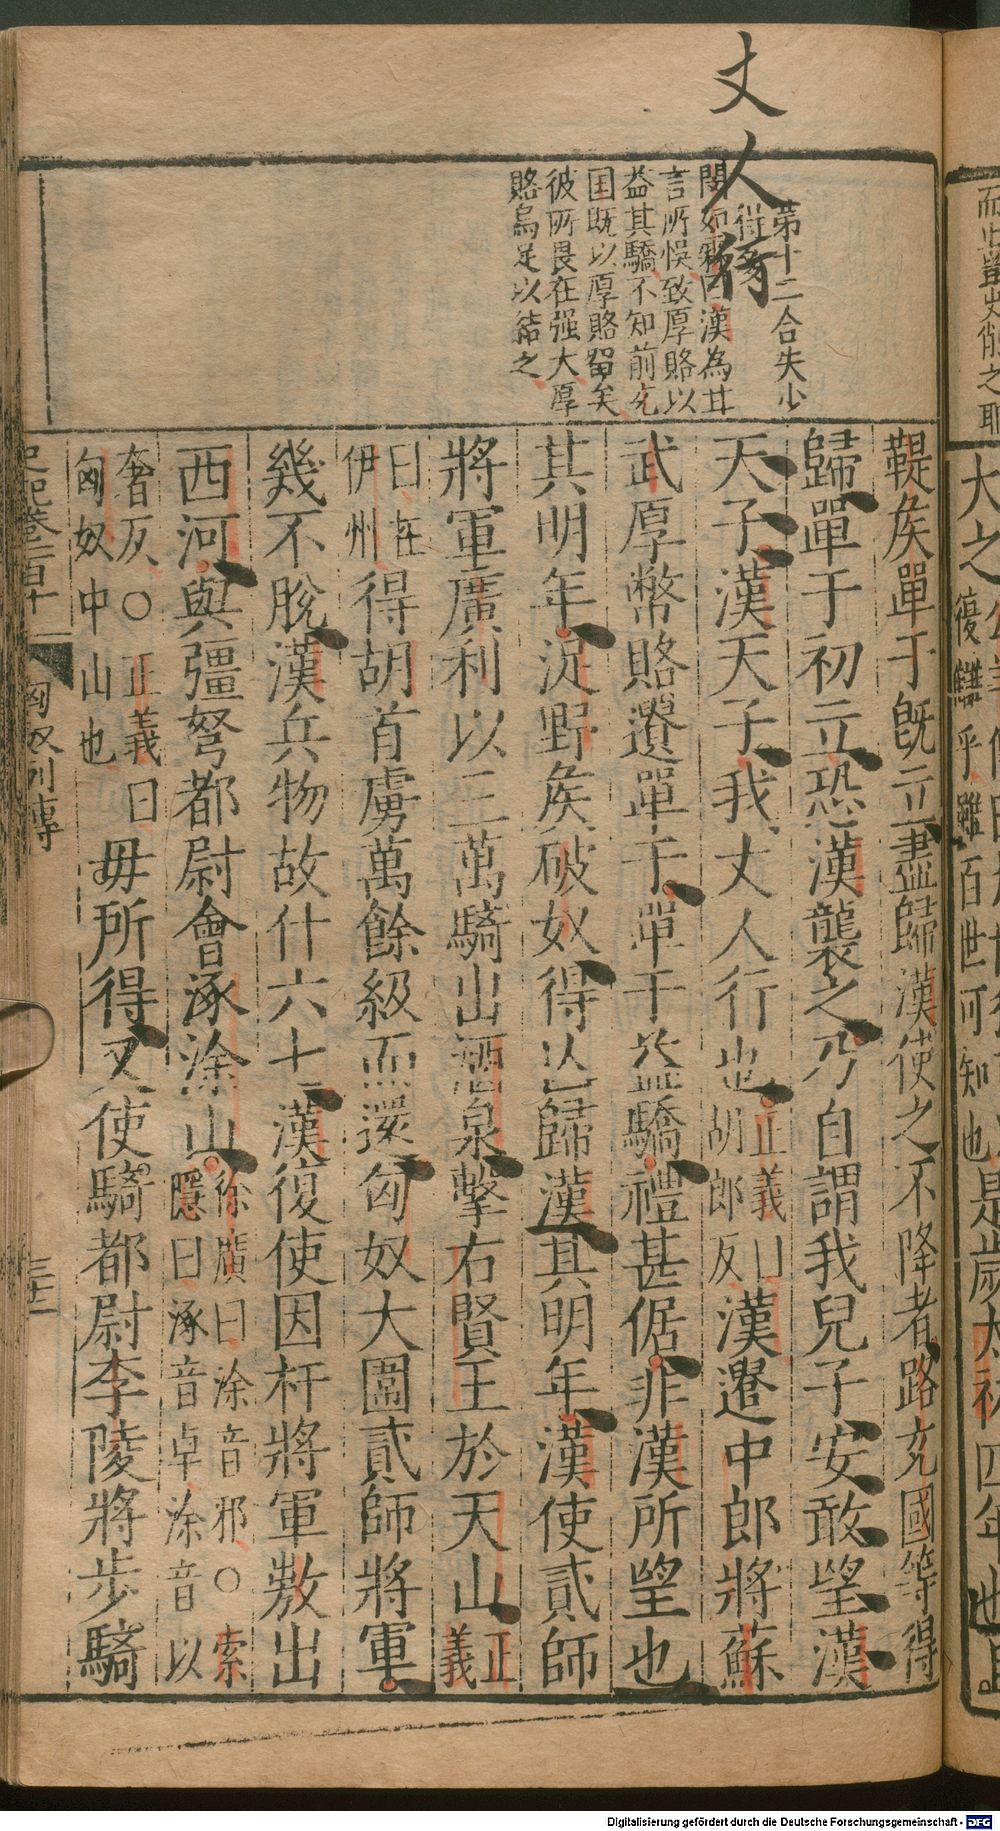 丈人行
第十二合失少
言所悞致厚賂以
益其驕不知前充
国既以厚賂留矣
彼所畏在强大厚
賂烏足以結之
鞮矦單于既立盡歸漢使之不降者路充國等得
歸單于初立恐漢襲之乃自謂我兒子安敢望漢
天子漢天子我丈人行也正義曰胡郎反漢遣中郎將蘇
武厚幣賂遺單于單于益驕禮甚倨非漢所望也
其明年浞野矦破奴得亡歸漢其明年漢使貳師
將軍廣利以三萬騎出酒泉擊右賢王於天山正義
曰在伊州得胡首虜萬餘級而還匈奴大圍貳師將軍
幾不脫漢兵物故什六七漢復使因杅將軍敖出
西河與彊弩都尉會涿涂山徐廣曰涂音邪○索隱曰涿音卓涂音以
奢反○正義曰匈奴中山也毋所得又使騎都尉李陵將步騎
史記卷一百十
匈奴列傳
Digitalisierung gefördert durch die Deutsche Forschungsgemeinschaft - DFG